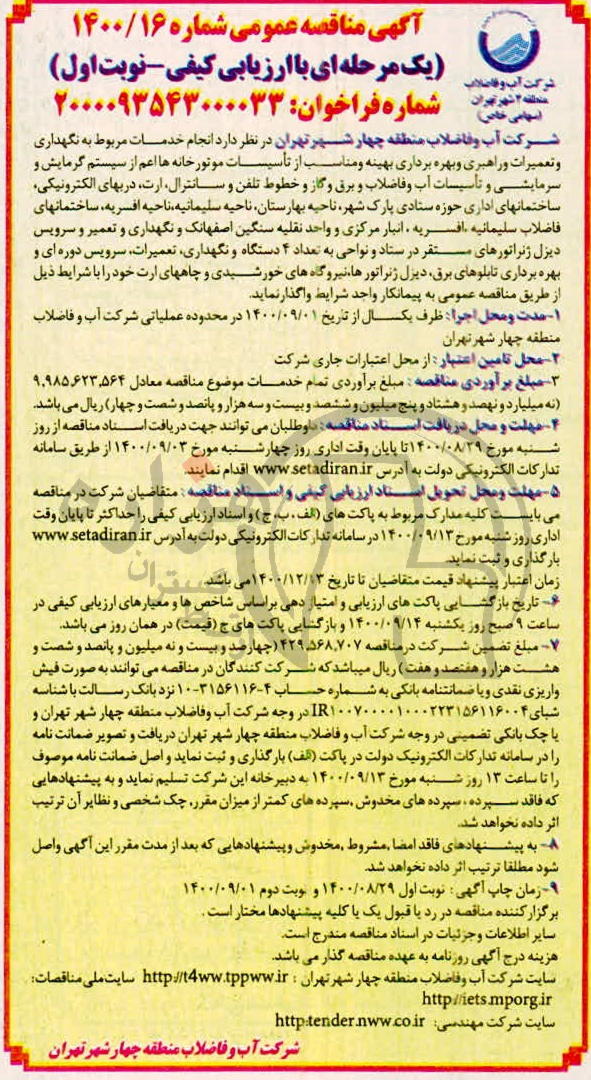 آگهی مناقصه عمومی شماره ۱۶/۱۴۰۰
(یک مرحله ای با ارزیابی کیفی - نوبت اول)
شماره فراخوان: ۲۰۰۰۰۹۳۵۴۳۰۰۰۰۳۳
شرکت آب و فاضلاب
منطقه ۴ شهر تهران
(سهامی خاص)
شرکت آب وفاضلاب منطقه چهار شهر تهران در نظر دارد انجام خدمات مربوط به نگهداری
وتعمیرات وراهبری وبهره برداری بهینه ومناسب از تأسیسات موتورخانه ها اعم از سیستم گرمایش و
سرمایشی و تأسیسات آب وفاضلاب و برق وگاز و خطوط تلفن و سانترال، ارت، دربهای الکترونیکی،
ساختمانهای اداری حوزه ستادی پارک شهر، ناحیه بهارستان، ناحیه سلیمانیه،ناحیه افسریه، ساختمانهای
فاضلاب سلیمانیه ،افسریه ، انبار مرکزی و واحد نقلیه سنگین اصفهانک و نگهداری و تعمیر و سرویس
دیزل ژنراتورهای مستقر در ستاد و نواحی به تعداد ۴ دستگاه و نگهداری، تعمیرات، سرویس دوره ای و
بهره برداری تابلوهای برق، دیزل ژنراتور ها،نیروگاه های خورشیدی و چاههای ارت خود را با شرایط ذیل
از طریق مناقصه عمومی به پیمانکار واجد شرایط واگذار نماید.
۱-مدت ومحل اجرا : ظرف یکسال از تاریخ ۱۴۰۰/۰۹/۰۱ در محدوده عملیاتی شرکت آب و فاضلاب
منطقه چهار شهر تهران
۲-محل تامین اعتبار : از محل اعتبارات جاری شرکت
۳-مبلغ برآوردی مناقصه : مبلغ برآوردی تمام خدمات موضوع مناقصه معادل ۹,۹۸۵,۶۲۳,۵۶۴
(نه میلیارد و نهصد و هشتاد و پنج میلیون و ششصد و بیست و سه هزار و پانصد و شصت و چهار) ریال می باشد.
۴-مهلت و محل دریافت اسناد مناقصه : داوطلبان می توانند جهت دریافت اسناد مناقصه از روز
شنبه مورخ ۱۴۰۰/۰۸/۲۹تا پایان وقت اداری روز چهارشنبه مورخ ۱۴۰۰/۰۹/۰۳ از طریق سامانه
تدارکات الکترونیکی دولت به آدرس www.setadiran.ir اقدام نمایند
۵-مهلت ومحل تحویل اسناد ارزیابی کیفی و اسناد مناقصه : متقاضیان شرکت در مناقصه
می بایست کلیه مدارک مربوط به پاکت های (الف ، ب، ج) و اسناد ارزیابی کیفی را حداکثر تا پایان وقت
اداری روز شنبه مورخ ۱۴۰۰/۰۹/۱۳ در سامانه تدارکات الکترونیکی دولت به آدرس www.setadiran.ir
بارگذاری و ثبت نماید.
زمان اعتبار پیشنهاد قیمت متقاضیان تا تاریخ ۱۴۰۰/۱۲/۱۳می باشد.
۶- تاریخ بازگشایی پاکت های ارزیابی و امتیاز دهی براساس شاخص ها و معیارهای ارزیابی کیفی در
ساعت ۹ صبح روز یکشنبه ۱۴۰۰/۰۹/۱۴ و بازگشایی پاکت های ج (قیمت) در همان روز می باشد.
۷- مبلغ تضمین شرکت درمناقصه ۴۲۹,۵۶۸,۷۰۷ (چهارصد و بیست و نه میلیون و پانصد و شصت و
هشت هزار و هفتصد و هفت ) ریال میباشدکه شرکت کنندگان در مناقصه می توانند به صورت فیش
واریزی نقدی و یا ضمانتنامه بانکی به شماره حساب ۴-۳۱۵۶۱۱۶-۱۰ نزد بانک رسالت با شناسه
شبای IR۱۰۰۷۰۰۰۰۱۰۰۰۲۲۳۱۵۶۱۱۶۰۰۴ در وجه شرکت آب وفاضلاب منطقه چهار شهر تهران و
یا چک بانکی تضمینی در وجه شرکت آب و فاضلاب منطقه چهار شهر تهران دریافت و تصویر ضمانت نامه
را در سامانه تدارکات الکترونیک دولت در پاکت (الف) بارگذاری و ثبت نماید و اصل ضمانت نامه موصوف
را تا ساعت ۱۳ روز شنبه مورخ ۱۴۰۰/۰۹/۱۳ به دبیرخانه این شرکت تسلیم نماید و به پیشنهادهایی
که فاقد سپرده ، سپرده های مخدوش ,سپرده های کمتر از میزان مقرر, چک شخصی و نظایر آن ترتیب
اثر داده نخواهد شد.
۸- به پیشنهادهای فاقد امضا ,مشروط ,مخدوش وپیشنهادهایی که بعد از مدت مقرر این آگهی واصل
شود مطلقا ترتیب اثر داده نخواهد شد.
۹-زمان چاپ آگهی : نوبت اول ۱۴۰۰/۰۸/۲۹ و نوبت دوم ۱۴۰۰/۰۹/۰۱
برگزار کننده مناقصه در رد یا قبول یک یا کلیه پیشنهادها مختار است .
سایر اطلاعات وجزئیات در اسناد مناقصه مندرج است.
هزینه درج آگهی روزنامه به عهده مناقصه گذار می باشد.
سایت شرکت آب وفاضلاب منطقه چهار شهر تهران : http://t4ww.tppww.ir سایت ملی مناقصات:
http://iets.mporg.ir
سایت شرکت مهندسی: http:tender.nww.co.ir
شرکت آب و فاضلاب منطقه چهار شهر تهران